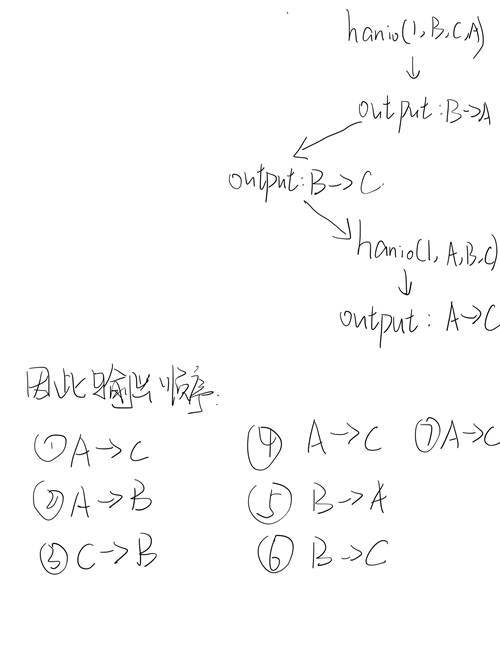 hanio(1,B,C,A)
output:B->A
output:B->C
hanio(1,A,B,C)
output: A->C
因此输出顺序:
①A->C ④ A->C ⑦A->C
②A->B ⑤ B->A
③C->B ⑥ B->C